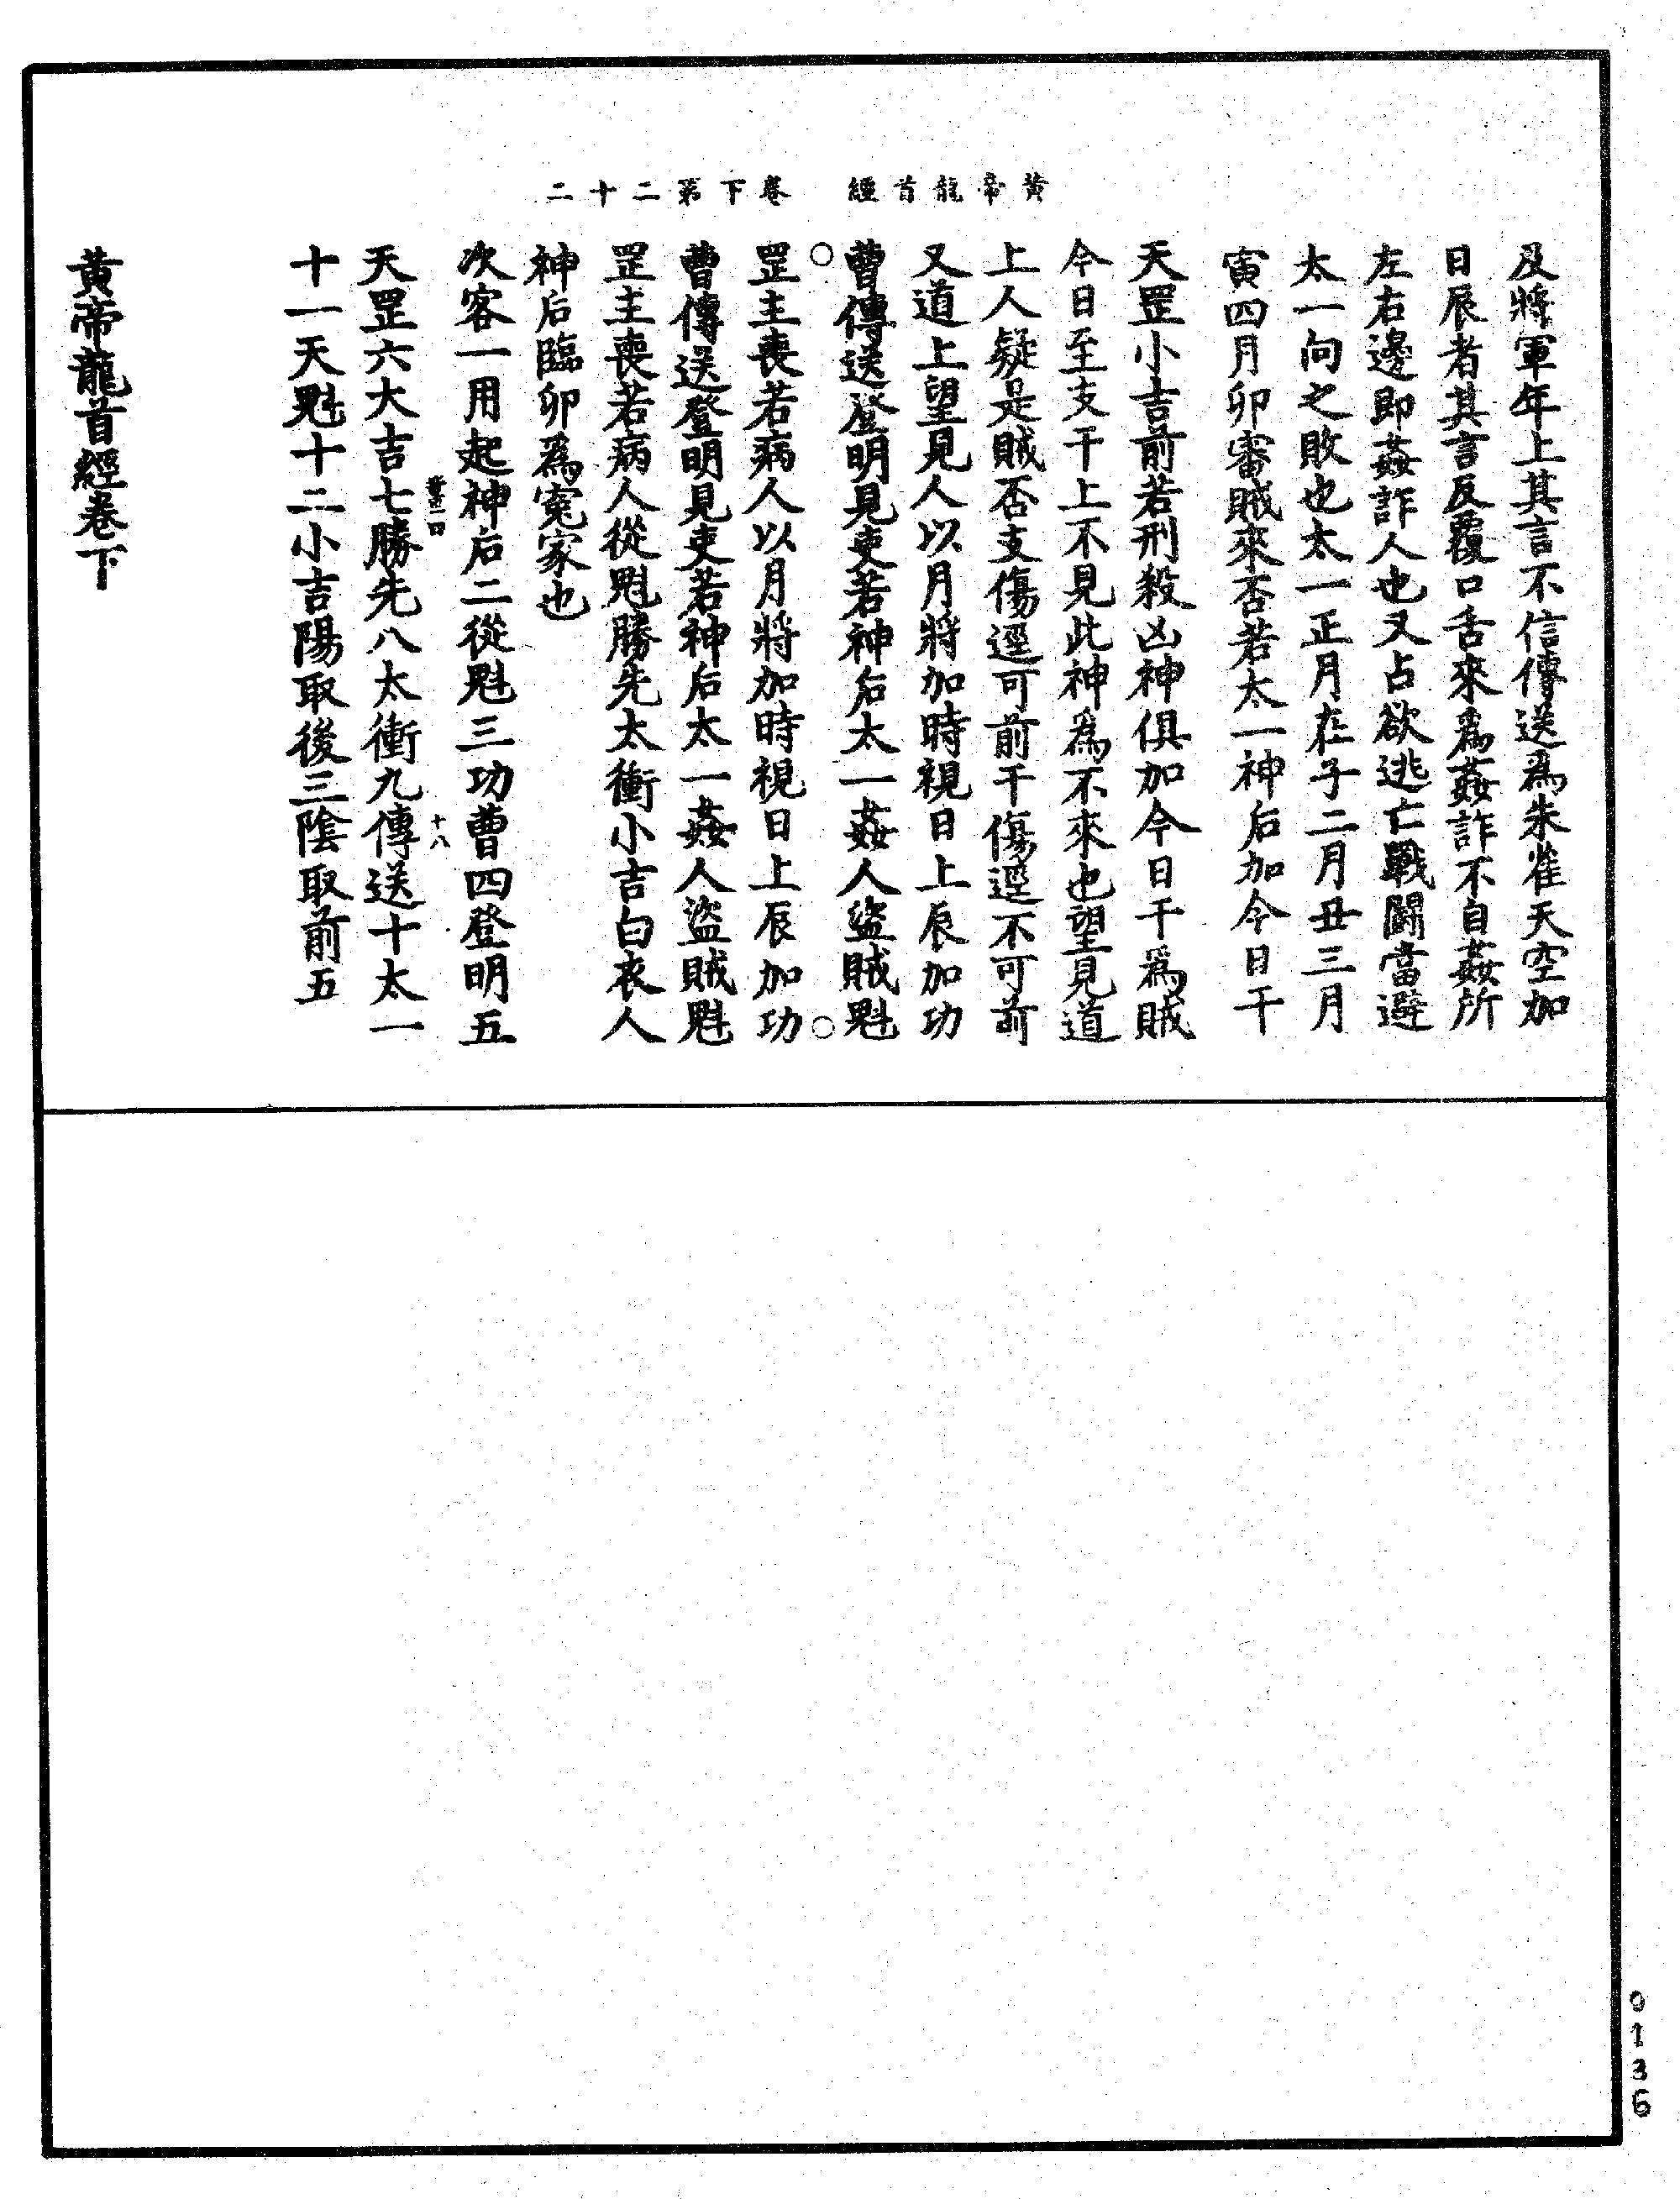 黃帝龍首經　卷下第二十二
及將軍年上其言不信傳送爲朱雀天空加
日辰者其言反覆口舌來爲姦詐不自姦所
左右邊即姦詐人也又占欲逃亡戰鬪當避
太一向之敗也太一正月在子二月丑三月
寅四月卯審賊來否若太一神后加今日干
天罡小吉前若刑殺凶神俱加今日干爲賊
今日至支干上不見此神爲不來也望見道
上人疑是賊否支傷逕可前干傷逕不可前
又道上望見人以月將加時視日上辰加功
曹傳送登明見吏若神后太一姦人盜賊魁
罡主喪若病人以月將加時視日上辰加功
曹傳送登明見吏若神后太一姦人盜賊魁
罡主喪若病人從魁勝先太衝小吉白衣人
神后臨卯爲寃家也
次客一用起神后二從魁三功曹四登明五
十八
天罡六大吉七勝先八太衝九傳送十太一
十一天魁十二小吉陽取後三陰取前五
黃帝龍首經卷下
0136